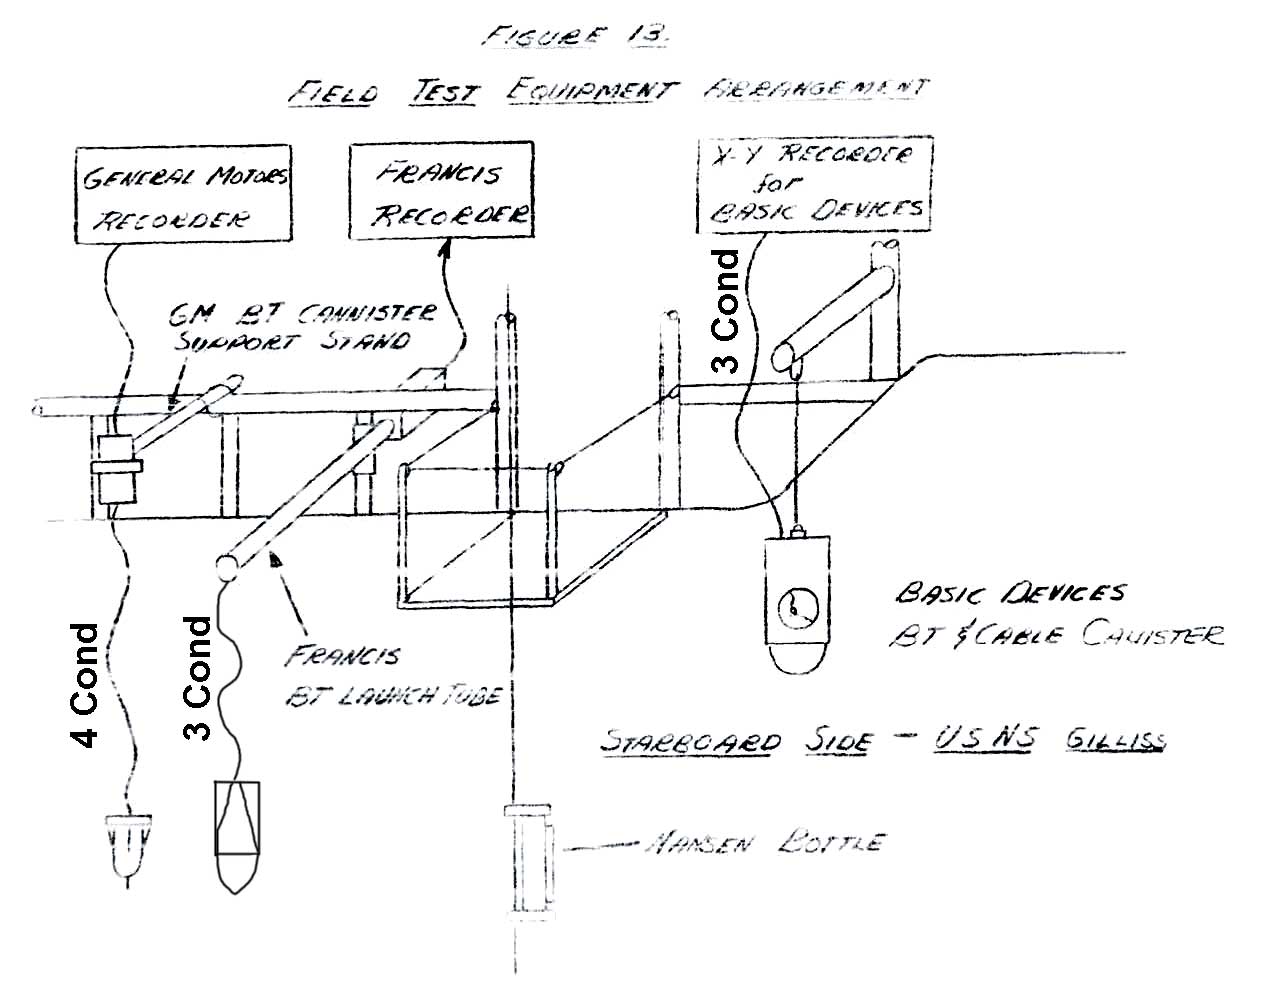 FIGURE 13.
FIELD TEST EQUIPMENT ARRANGEMENT
GENERAL MOTORS
RECORDER
FRANCIS
RECORDER
X-Y RECORDER
for
BASIC DEVICES
3 Cond
GM BT CANNISTER
SUPPORT STAND
4 Cond
3 Cond
FRANCIS
BT LAUNCH TUBE
BASIC DEVICES
BT & CABLE CANISTER
STARBOARD SIDE - USNS GILLISS
NANSEN BOTTLE